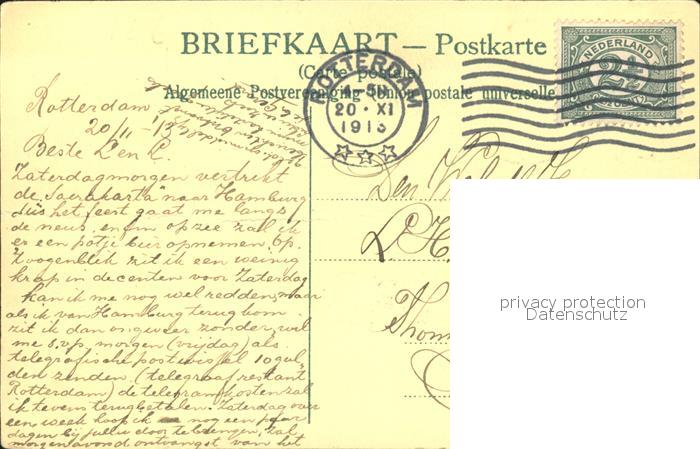 BRIEFKAART — Postkarte
(Carte postale)
Algemeene Postvereeniging - Union postale universelle
ROTTERDAM
20 · XI
1913
NEDERLAND
2½
Rotterdam
20/11 - 13
Beste L en C.
Zaterdagmorgen vertrekt
de "Soerakarta" naar Hamburg
dus het feest gaat me langs
de neus, en om op zee zal ik
er een potje bier op nemen. Op
't oogenblik zit ik een weinig
krap in de centen voor Zaterdag
kan ik me nog wel redden, maar
als ik van Hamburg terug kom
zit ik dan ongeveer zonder, wil
me s.v.p. morgen (vrijdag) als
telegrafische postwissel 10 gul
den zenden. (telegraaf restant
Rotterdam) de telegramkosten zal
ik tevens terugbetalen. Zaterdag over
een week hoop ik nog een paar
dagen bij jullie door te brengen, zal
morgenavond ontvangst van het
Den
L. H.
Thom
privacy protection
Datenschutz